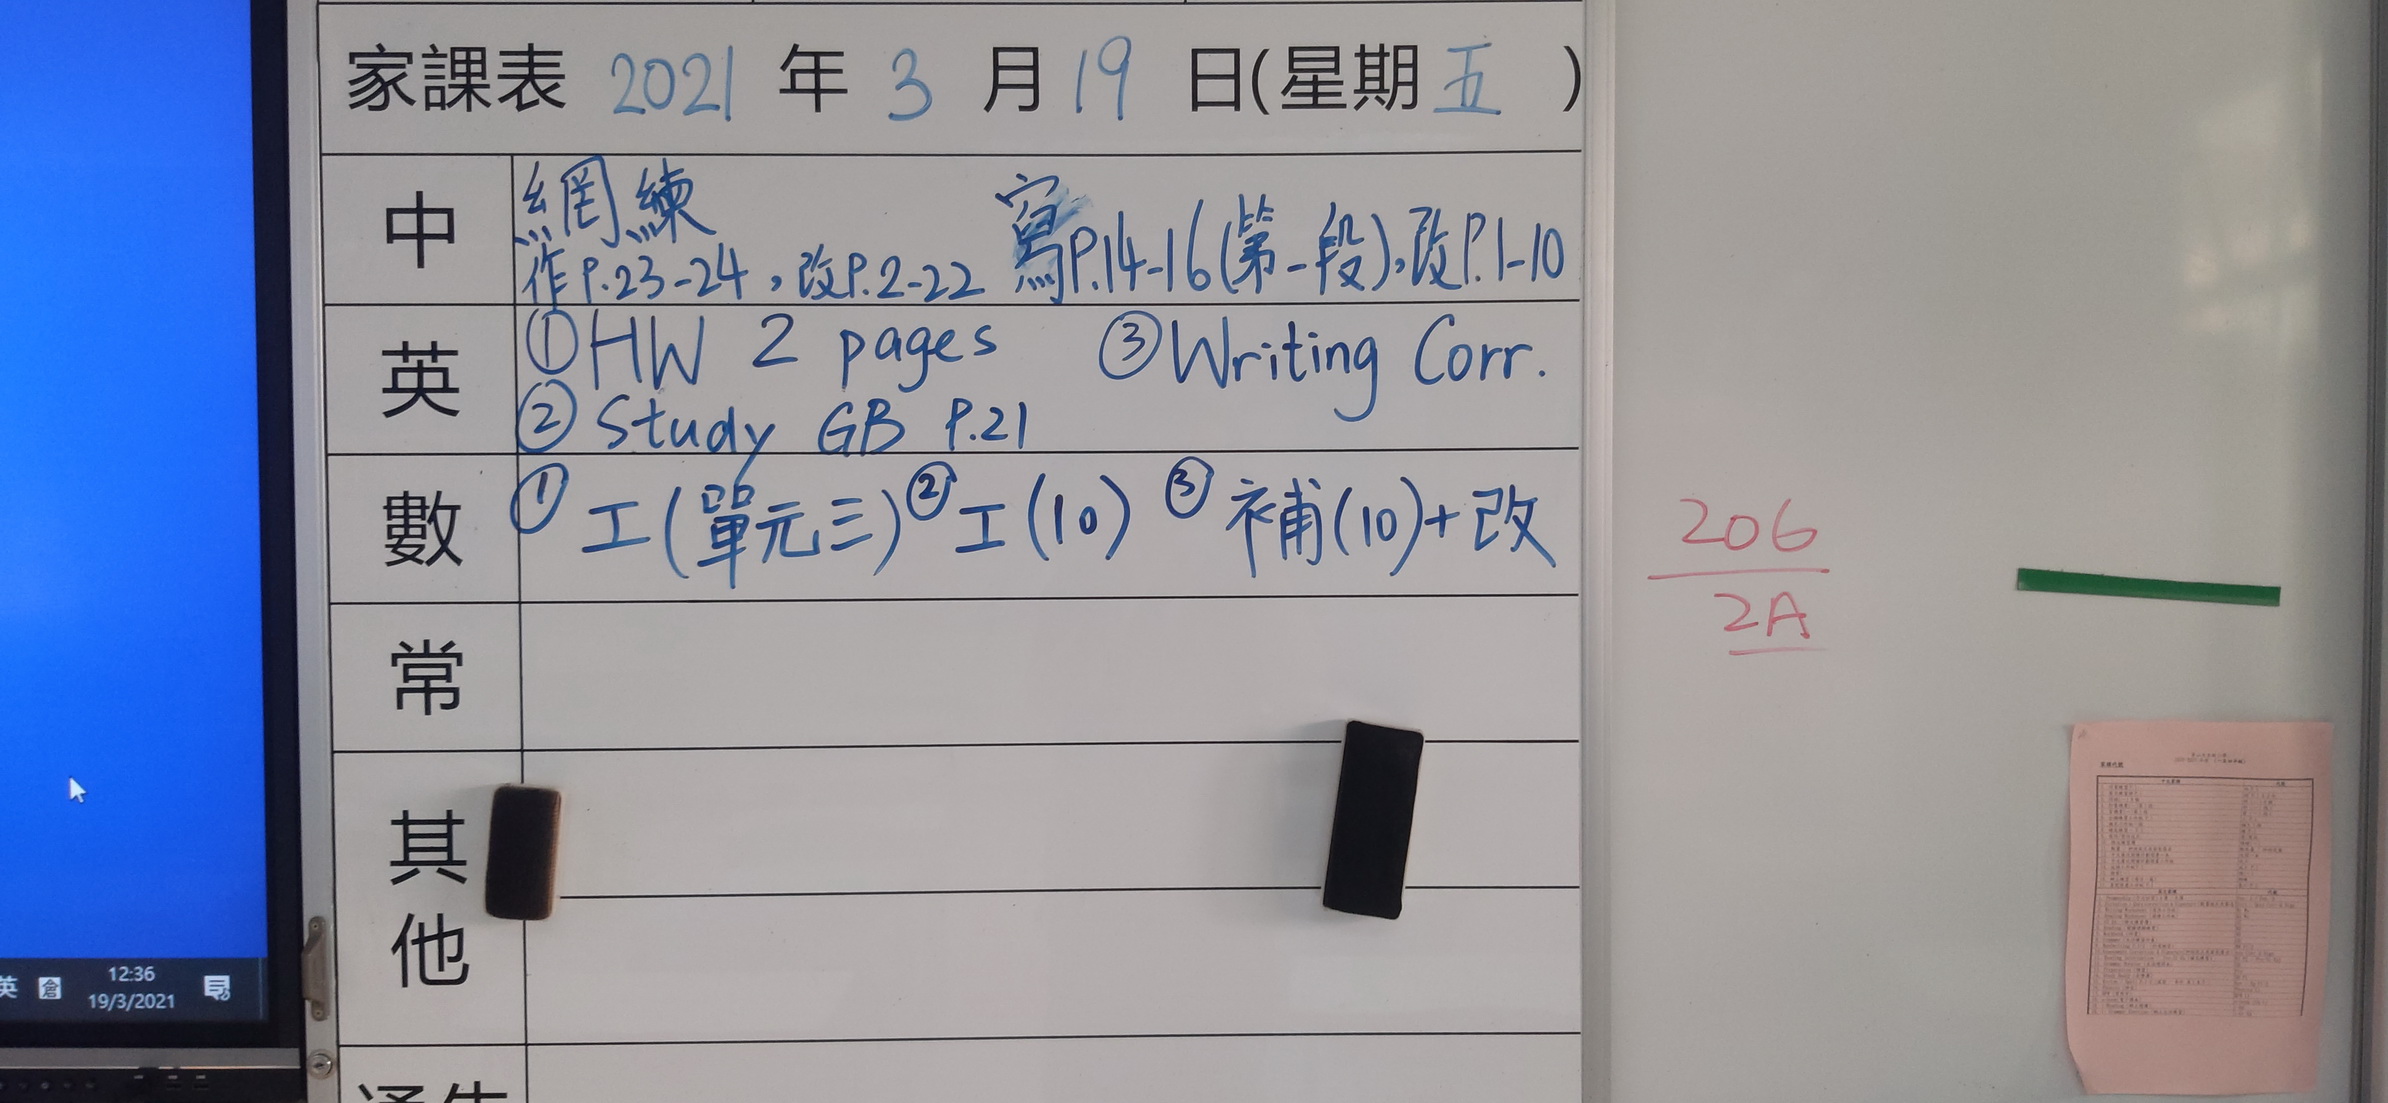 家課表 2021 年 3 月 19 日(星期五)
中
網練
作P.23-24，改P.2-22 寫P.14-16(第一段),改P.1-10
英
①HW 2 pages ③Writing Corr.
②Study GB P.21
數
①工(單元三)②工(10) ③補(10)+改
常
其他
206
2A
英 倉 12:36
19/3/2021